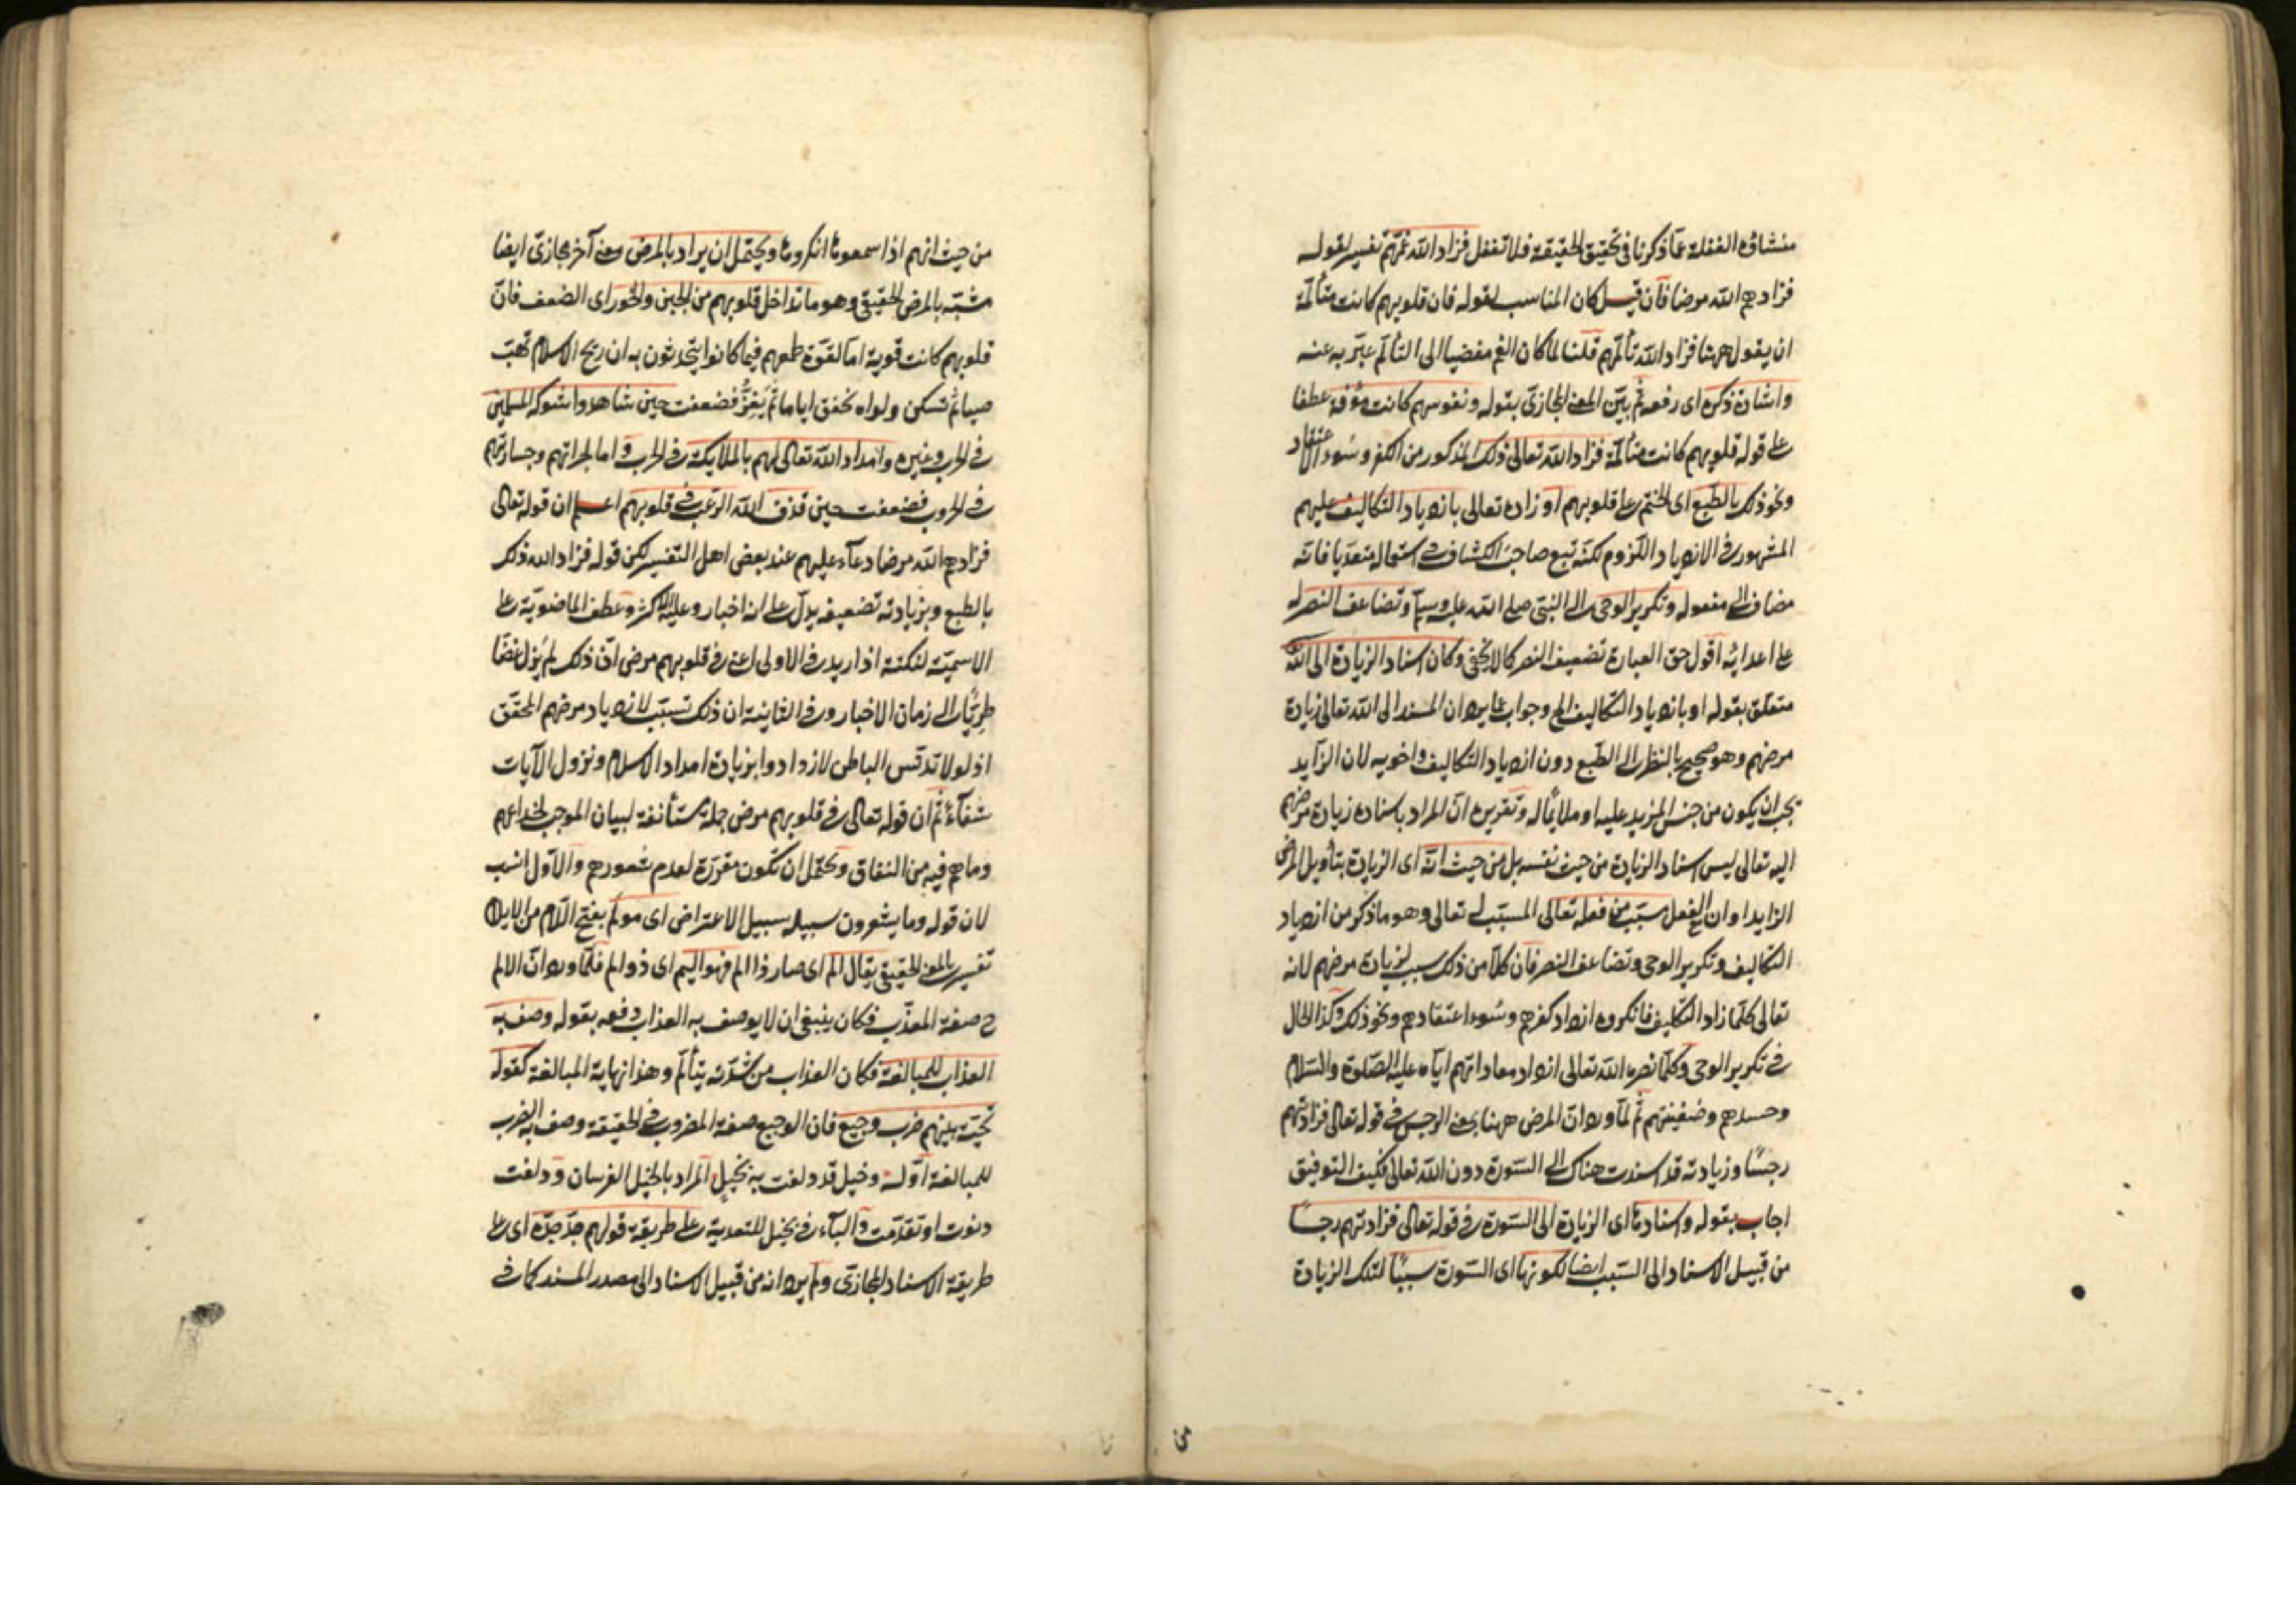 منشاؤه الغفلة عمّا ذكرنا فى تحقيق الحقيقة فلا تغفل فزاد الله غمّهم تفسير لقوله
فزادهم الله مرضا فان قيل كان المناسب لقوله فان قلوبهم كانت متألمة
ان يقول ههنا فزاد الله تألمهم قلنا لما كان الغم مفضيا الى التألم عبّر به عنه
واشادة ذكره اى رفعه ثم بيّن المعنى المجازى بقوله ونفوسهم كانت مؤفة عطفا
على قوله قلوبهم كانت متألمة فزاد الله تعالى ذلك المذكور من الكفر وسوء الاعتقاد
ونحو ذلك بالطبع اى الختم على قلوبهم او زاده تعالى بازدياد التكاليف عليهم
المشهور فى الازدياد اللزوم لكنّه تبع صاحب الكشاف فى استعماله متعديا فانّه
مضاف الى مفعوله وتكرير الوحى الى النبىّ صلى الله عليه وسلم وتضاعف النصر له
على اعدائه اقول حق العبارة تضعيف النصر كما لا يخفى وكان اسناد الزيادة الى الله
متعلق بقوله او بازدياد التكاليف الخ وجواب عما يرد ان المسند الى الله تعالى زيادة
مرضهم وهو صحيح بالنظر الى الطبع دون ازدياد التكاليف واخويه لان الزايد
يجب ان يكون من جنس المزيد عليه او ملايما له وتقريره انّ المراد باسناده زيادة مرضهم
اليه تعالى ليس اسناد الزيادة من حيث نفسه بل من حيث انّه اى الزيادة بتأويل المرض
الزايد او ان الفعل مسبّب من فعله تعالى المسبّب له تعالى وهو ما ذكر من ازدياد
التكاليف وتكرير الوحى وتضاعف النصر فان كلاّ من ذلك سبب لزيادة مرضهم لانه
تعالى كلّما زاد التكليف فانكروه ازداد كفرهم وسوء اعتقادهم ونحو ذلك وكذا الحال
فى تكرير الوحى وكلّما نصره الله تعالى ازداد معاداتهم ايّاه عليه الصّلوة والسّلام
وحسدهم وضغينتهم ثم لمّا ورد انّ المرض ههنا بمعنى الرجس فى قوله تعالى فزادتهم
رجسًا وزيادته قد اسندت هناك الى السّورة دون الله تعالى فكيف التوفيق
اجاب بقوله واسنادها اى الزيادة الى السّورة فى قوله تعالى فزادتهم رجسًا
من قبيل الاسناد الى السّبب ايضا لكونها اى السّورة سببًا لتلك الزيادة
من
من حيث انهم اذا سمعوها انكروها ويحتمل ان يراد بالمرض معنى آخر مجازىّ ايضا
مشبّه بالمرض الحقيقى وهو ما تداخل قلوبهم من الجبن والخور اى الضعف فانّ
قلوبهم كانت قوية اما لقوّة طمعهم فيما كانوا يتحدثون به ان ريح الاسلام تهبّ
حينا ثم تسكن ولواه تخفق اياما ثم يقرّ فضعفت حين شاهدوا شوكة المسلمين
فى الحرب وغيره وامداد الله تعالى لهم بالملايكة فى الحرب واما لجرأتهم وجسارتهم
فى الحروب فضعفت حين قذف الله الرّعب فى قلوبهم اعلم ان قوله تعالى
فزادهم الله مرضا دعآء عليهم عند بعض اهل التفسير لكن قوله فزاد الله ذلك
بالطبع وبزيادته تضعيفه يدلّ على انه اخبار وعليه الاكثر وعطف الماضويّة على
الاسميّة لنكتة اذ اريد فى الاولى اعنى فى قلوبهم مرض انّ ذلك لم يزل غضّا
طريّا الى زمان الاخبار وفى الثانية ان ذلك تسبّب لازدياد مرضهم المحقق
اذ لولا تدنّس الباطن لازدادوا بزيادة امداد الاسلام ونزول الآيات
شفآء ثم ان قوله تعالى فى قلوبهم مرض جملة مستأنفة لبيان الموجب لخداعهم
وما هم فيه من النفاق ويحتمل ان تكون مقررة لعدم شعورهم والاول انسب
لان قوله وما يشعرون سبيله سبيل الاعتراض اى مولَم بفتح اللام من الايلام
تفسير بالمعنى الحقيقى يقال الم اى صار ذا الم فهو اليم اى ذو الم فلمّا ورد انّ الالم
ح صفة المعذّب فكان ينبغى ان لا يوصف به العذاب دفعه بقوله وصف به
العذاب للمبالغة فكان العذاب من شدّته يتألّم وهذا نهاية المبالغة كقوله
تحيّة بينهم ضرب وجيع فان الوجيع صفة المضروب فى الحقيقة وصف به الضرب
للمبالغة اوّله وخيل قد دلفت به بخيل المراد بالخيل الفرسان ودلفت
دنوت او تقدّمت والبآء فى بخيل للتعدية على طريقة قولهم جدّ جدّه اى على
طريقة الاسناد المجازى ولم يرد انه من قبيل الاسناد الى مصدر المسند كما فى